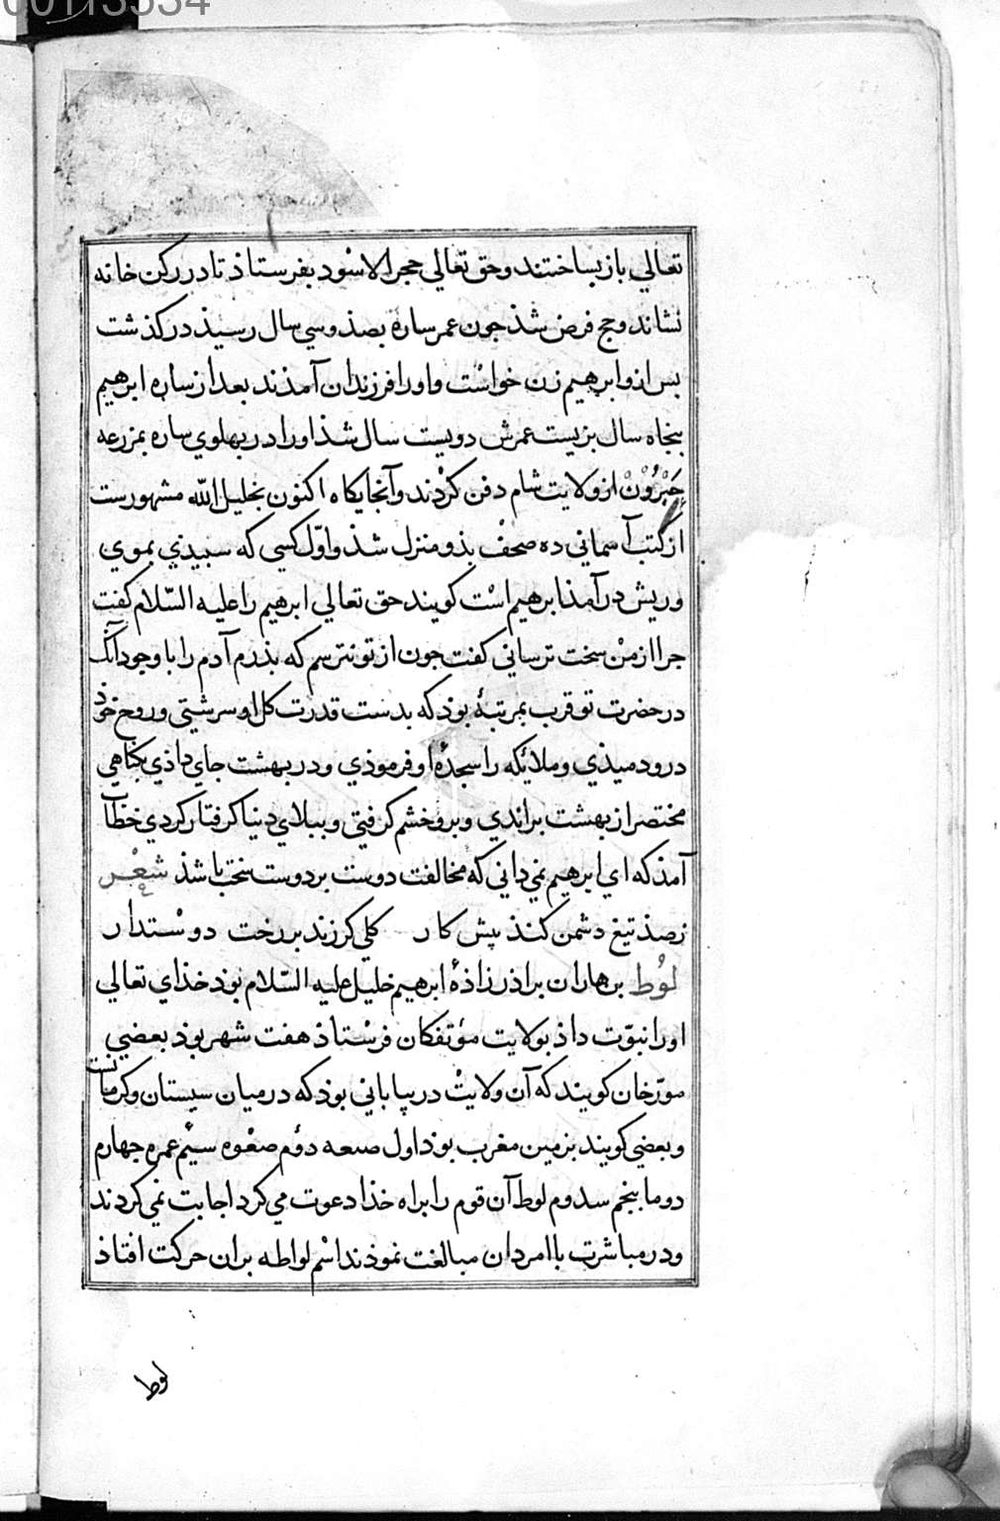 00113534
تعالي باز بساختند و حق تعالي حجر الاسود بفرستاذ تا در ركن خانه
نشاند و حج فرض شذ جون عمر ساره بصذ و سي سال رسيذ در كذشت
بس ازو ابرهيم زن خواست و اورا فرزندان آمذند بعد از ساره ابرهيم
بنجاه سال بزيست عمرش دويست سال شذ اورا در بهلوي ساره بمزرعه
حَبْرُوْنْ از ولايت شام دفن كردند و آنجايكاه اكنون بخليل الله مشهورست
از كتب آسماني ده صحف بذو منزل شذ و اوّل كسي كه سبيذي بموي
و ريش در آمذ ابرهيم است كويند حق تعالي ابرهيم را عليه السّلام كفت
جرا از من سخت ترساني كفت جون از تو نترسم كه بذرم آدم را با وجود آنك
در حضرت تو قرب بمرتبۀ بوذ كه بدست قدرت كل او سرشتي و روح خوذ
درو دميذي و ملائكه را سجدۀ او فرموذي و در بهشت جاي داذي بكناهي
مختصر از بهشت براندي و برو خشم كرفتي و ببلاي دنيا كرفتار كردي خطاب
آمذ كه اي ابرهيم نمي داني كه مخالفت دوست بر دوست سخت باشذ شعر
ز صذ تيغ دشمن كنذ بيش كار كلي كز زند بر رخت دوستدار
لوُط بن هاران براذر زاذۀ ابرهيم خليل عليه السّلام بوذ خذاي تعالي
اورا نبوّت داذ بولايت مؤتفكان فرستاذ هفت شهر بوذ بعضي
مورّخان كويند كه آن ولايت در بياباني بوذ كه درميان سيستان و كرمانست
و بعضي كويند بزمين مغرب بوذ اول صبعه دوُم صعوه سيُم عمره جهارم
دوما بنجم سدوم لوط آن قوم را براه خذا دعوت مي كرد اجابت نمي كردند
و در مباشرت با امردان مبالغت نموذند اسم لواطه بران حركت افتاذ
لوط